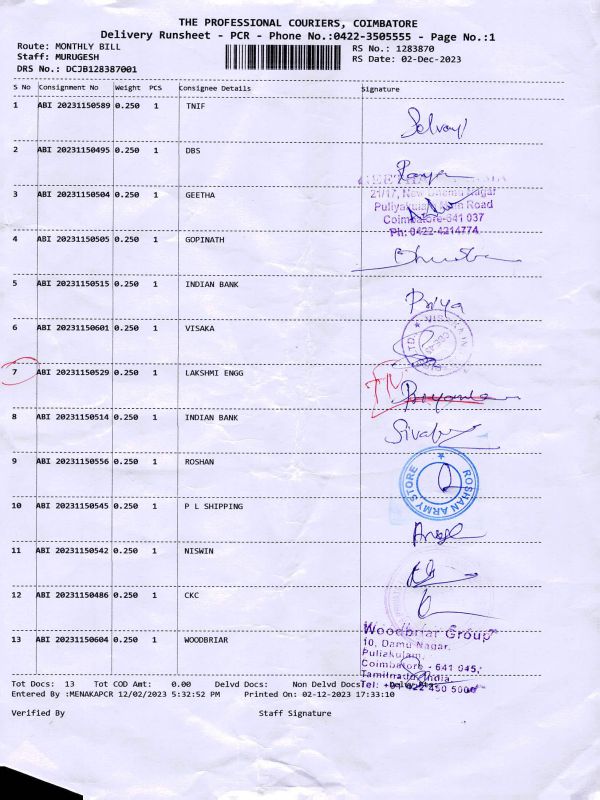 THE PROFESSIONAL COURIERS, COIMBATORE
Delivery Runsheet - PCR - Phone No.:0422-3505555 - Page No.:1
Route: MONTHLY BILL
RS No.: 1283870
Staff: MURUGESH
RS Date: 02-Dec-2023
DRS No.: DCJB128387001
S No Consignment No Weight PCS Consignee Details Signature
1 ABI 20231150589 0.250 1 TNIF
2 ABI 20231150495 0.250 1 DBS
3 ABI 20231150504 0.250 1 GEETHA
21/17, New Nagar
Puliyakulam Main Road
Coimbatore-641 037
Ph: 0422-4214774
4 ABI 20231150505 0.250 1 GOPINATH
5 ABI 20231150515 0.250 1 INDIAN BANK Priya
6 ABI 20231150601 0.250 1 VISAKA
7 ABI 20231150529 0.250 1 LAKSHMI ENGG
8 ABI 20231150514 0.250 1 INDIAN BANK
9 ABI 20231150556 0.250 1 ROSHAN
ROSHAN ARMY STORE
10 ABI 20231150545 0.250 1 P L SHIPPING
11 ABI 20231150542 0.250 1 NISWIN
12 ABI 20231150486 0.250 1 CKC
13 ABI 20231150604 0.250 1 WOODBRIAR
Woodbriar Group
10, Damu Nagar,
Puliakulam,
Coimbatore - 641 045,
Tamilnadu, India.
Tel: +91 422 450 5000
Tot Docs: 13 Tot COD Amt: 0.00 Delvd Docs: Non Delvd Docs
Entered By :MENAKAPCR 12/02/2023 5:32:52 PM Printed On: 02-12-2023 17:33:10
Verified By Staff Signature